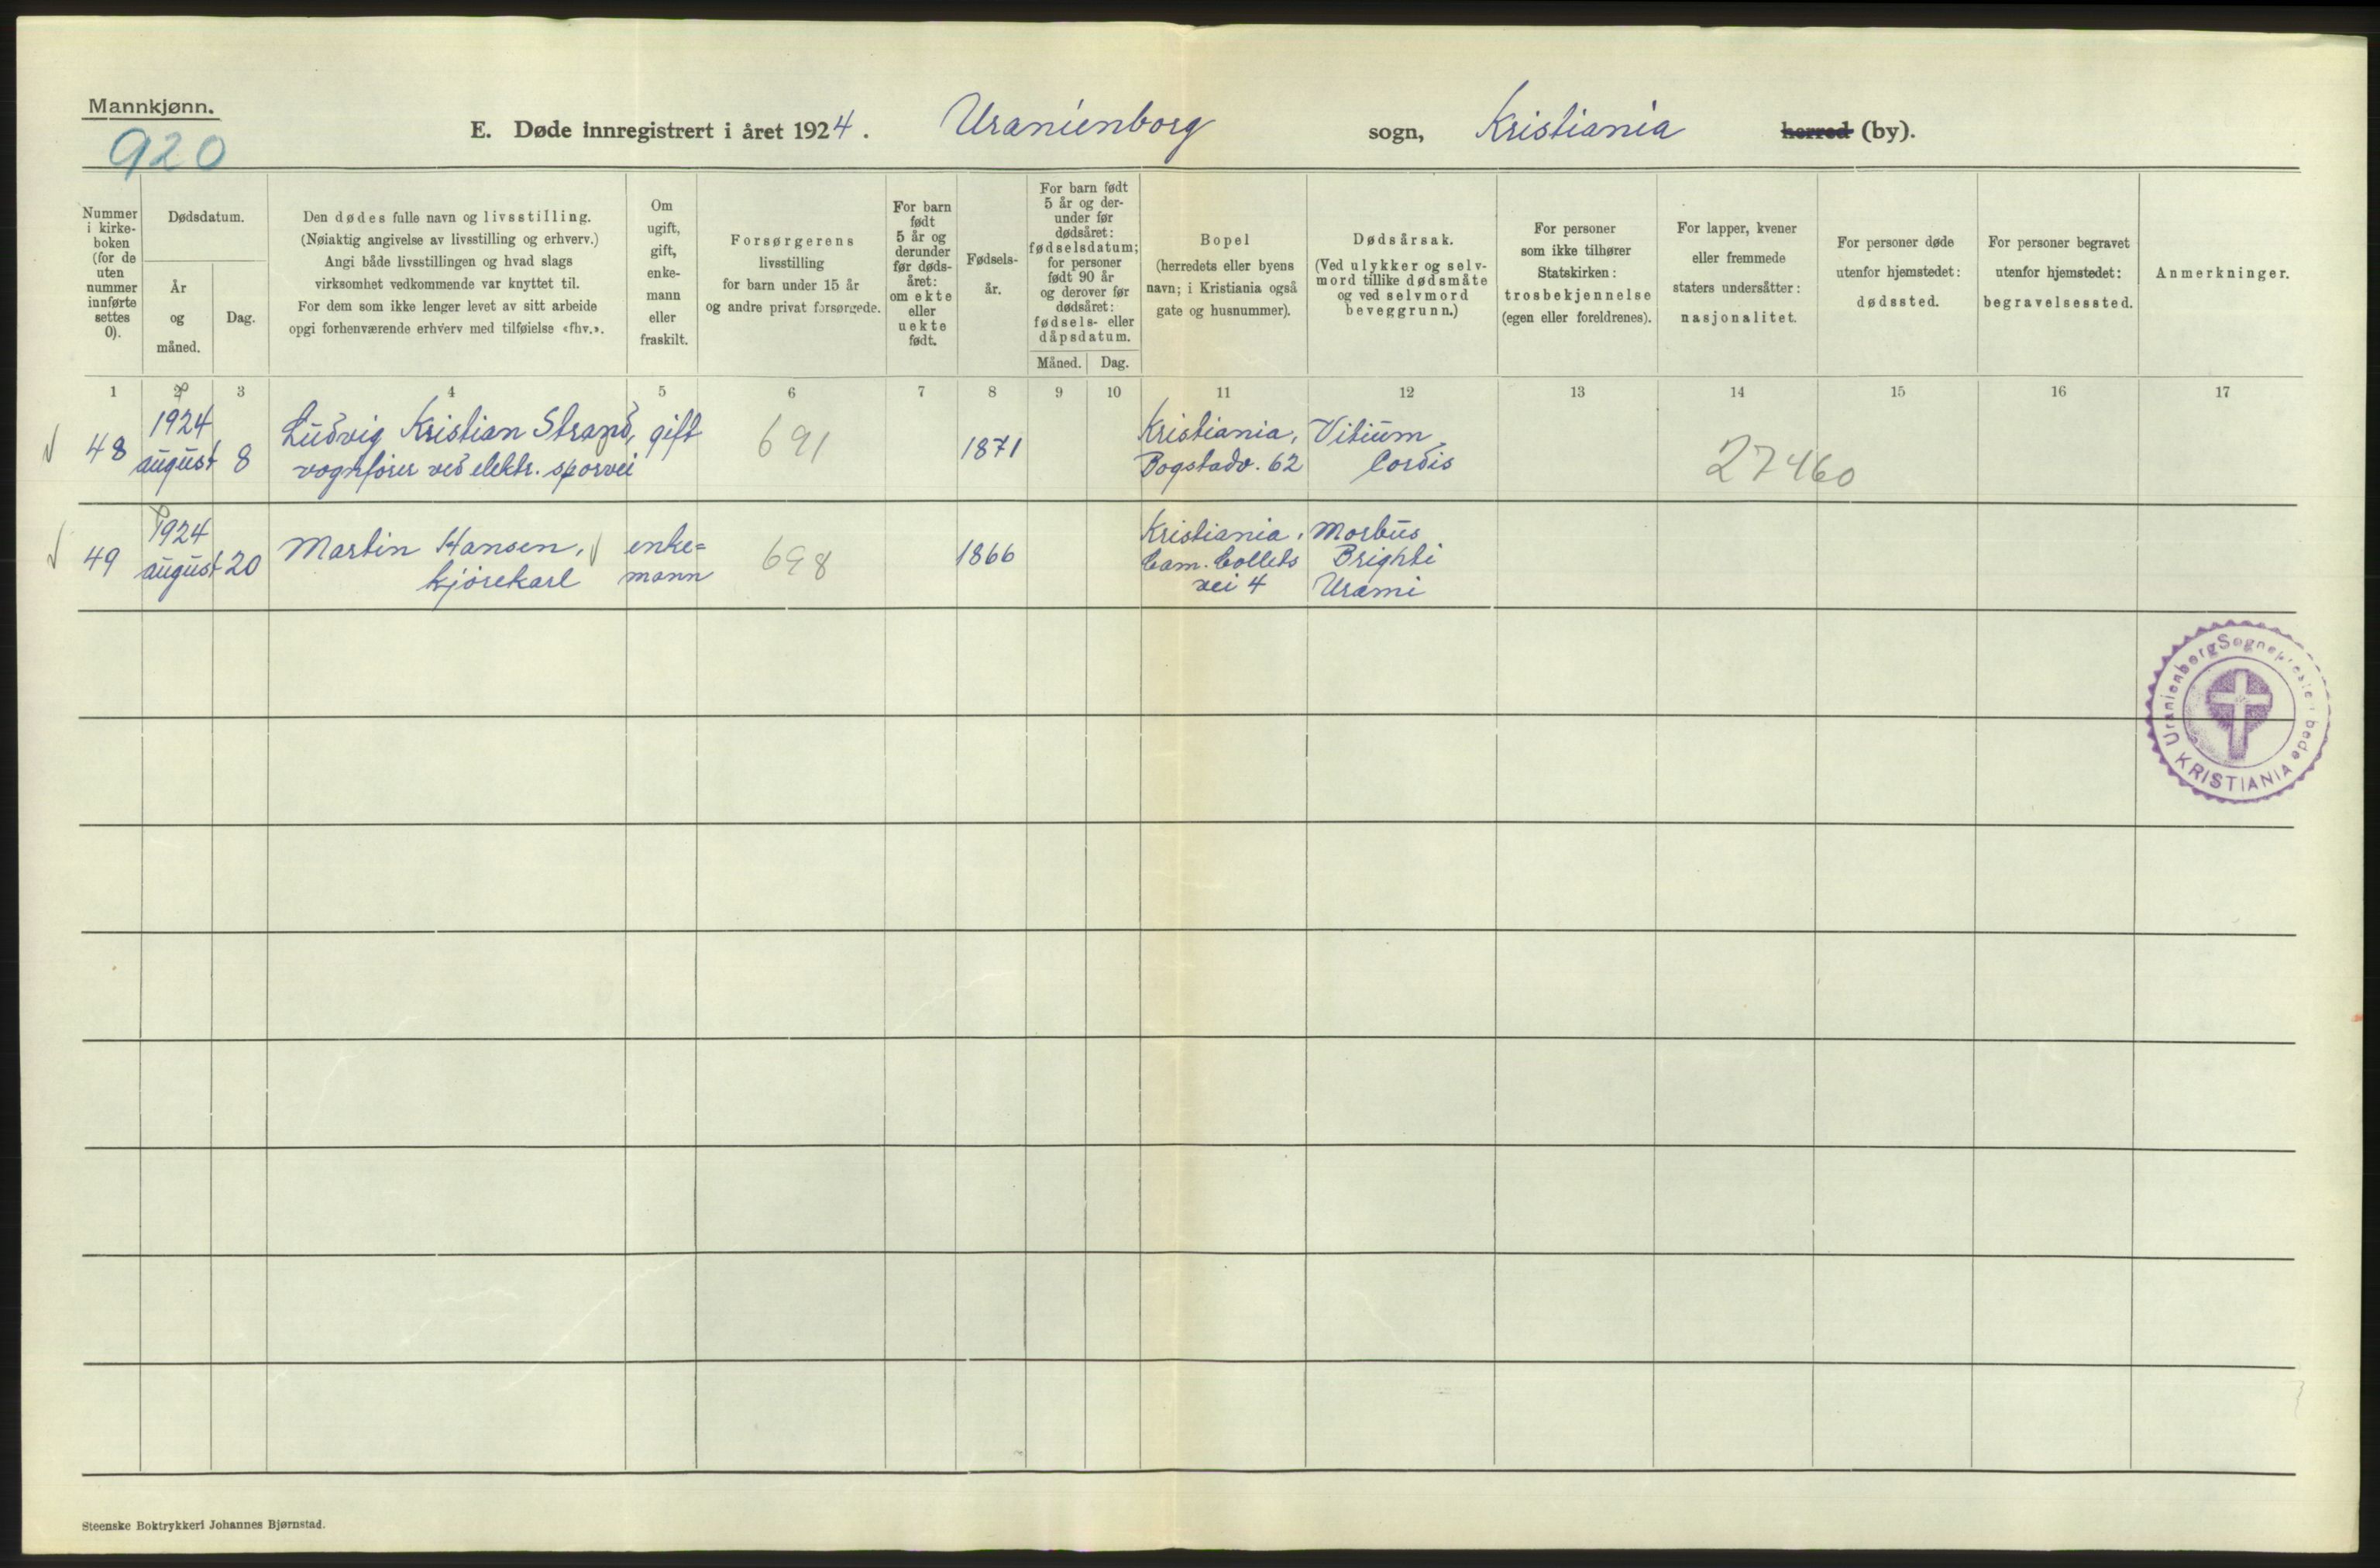 Mannkjønn.
920
E. Døde innregistrert i året 1924. Uranienborg sogn, Kristiania herred (by).
Nummer
i kirke-
boken
(for de
uten
nummer
innførte
settes
0).
Dødsdatum.
År
og
måned.
Dag.
Den dødes fulle navn og livsstilling.
(Nøiaktig angivelse av livsstilling og erhverv.)
Angi både livsstillingen og hvad slags
virksomhet vedkommende var knyttet til.
For dem som ikke lenger levet av sitt arbeide
opgi forhenværende erhverv med tilføielse «fhv.».
Om
ugift,
gift,
enke-
mann
eller
fraskilt.
Forsørgerens
livsstilling
for barn under 15 år
og andre privat forsørgede.
For barn
født
5 år og
derunder
før døds-
året:
om ekte
eller
uekte
født.
Fødsels-
år.
For barn født
5 år og der-
under før
dødsåret:
fødselsdatum;
for personer
født 90 år
og derover før
dødsåret:
fødsels- eller
dåpsdatum.
Måned. Dag.
Bopel
(herredets eller byens
navn; i Kristiania også
gate og husnummer).
Dødsårsak.
(Ved ulykker og selv-
mord tillike dødsmåte
og ved selvmord
beveggrunn.)
For personer
som ikke tilhører
Statskirken:
trosbekjennelse
(egen eller foreldrenes).
For lapper, kvener
eller fremmede
staters undersåtter:
nasjonalitet.
For personer døde
utenfor hjemstedet:
dødssted.
For personer begravet
utenfor hjemstedet:
begravelsessted.
Anmerkninger.
1 2 3 4 5 6 7 8 9 10 11 12 13 14 15 16 17
48
1924
august
8
Ludvig Kristian Strand,
vognfører ved elektr. sporvei
gift
691
1871
Kristiania,
Bogstadv. 62
Vitium
Cordis
27460
49
1924
august
20
Martin Hansen,
kjørekarl
enke=
mann
698
1866
Kristiania,
Cam. Collets
vei 4
Morbus
Brighti
Uræmi
Uranienborg Sogneprestembede
KRISTIANIA
Steenske Boktrykkeri Johannes Bjørnstad.